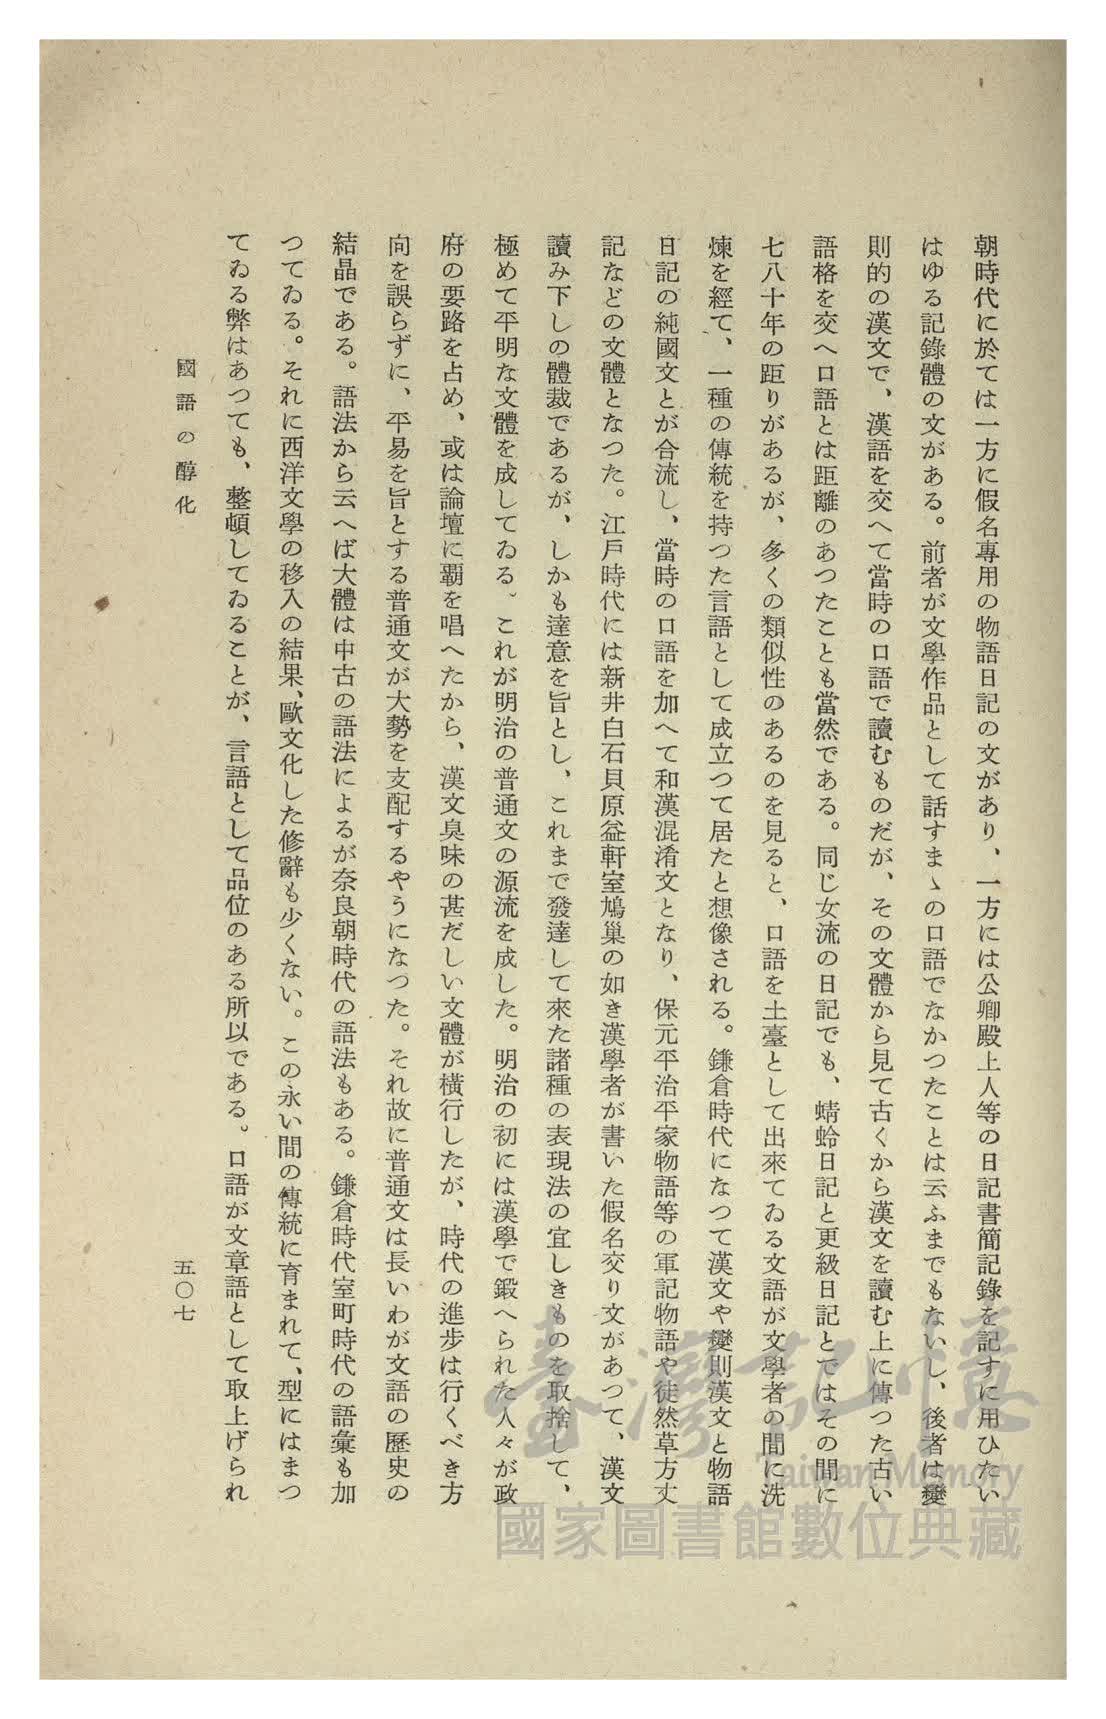 朝時代に於ては一方に假名專用の物語日記の文があり、一方には公卿殿上人等の日記書簡記錄を記すに用ひたい
はゆる記錄體の文がある。前者が文學作品として話すまゝの口語でなかつたことは云ふまでもないし、後者は變
則的の漢文で、漢語を交へて當時の口語で讀むものだが、その文體から見て古くから漢文を讀む上に傳つた古い
語格を交へ口語とは距離のあつたことも當然である。同じ女流の日記でも、蜻蛉日記と更級日記とではその間に
七八十年の距りがあるが、多くの類似性のあるのを見ると、口語を土臺として出來てゐる文語が文學者の間に洗
煉を經て、一種の傳統を持つた言語として成立つて居たと想像される。鎌倉時代になつて漢文や變則漢文と物語
日記の純國文とが合流し、當時の口語を加へて和漢混淆文となり、保元平治平家物語等の軍記物語や徒然草方丈
記などの文體となつた。江戶時代には新井白石貝原益軒室鳩巢の如き漢學者が書いた假名交り文があつて、漢文
讀み下しの體裁であるが、しかも達意を旨とし、これまで發達して來た諸種の表現法の宜しきものを取捨して、
極めて平明な文體を成してゐる。これが明治の普通文の源流を成した。明治の初には漢學で鍛へられた人々が政
府の要路を占め、或は論壇に覇を唱へたから、漢文臭味の甚だしい文體が橫行したが、時代の進步は行くべき方
向を誤らずに、平易を旨とする普通文が大勢を支配するやうになつた。それ故に普通文は長いわが文語の歷史の
結晶である。語法から云へば大體は中古の語法によるが奈良朝時代の語法もある。鎌倉時代室町時代の語彙も加
つてゐる。それに西洋文學の移入の結果、歐文化した修辭も少くない。この永い間の傳統に育まれて、型にはまつ
てゐる弊はあつても、整頓してゐることが、言語として品位のある所以である。口語が文章語として取上げられ
國語の醇化
五〇七
臺灣記憶
Taiwan Memory
國家圖書館數位典藏